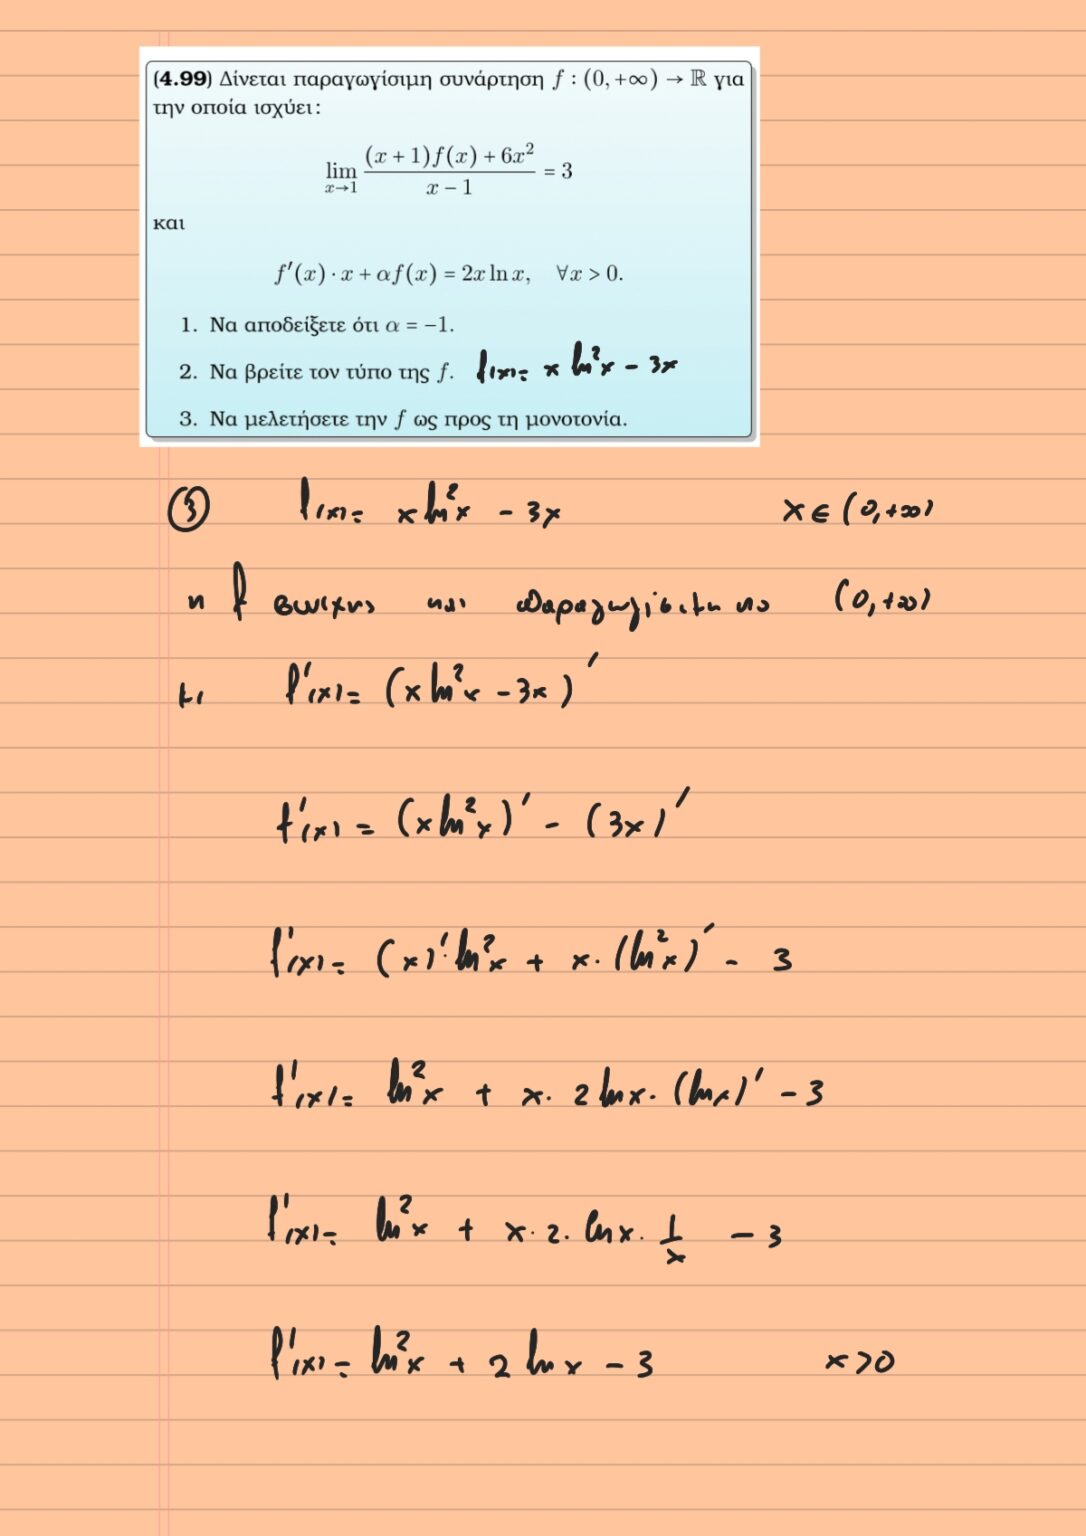 (4.99) Δίνεται παραγωγίσιμη συνάρτηση f : (0, +∞) → ℝ για
την οποία ισχύει:
lim x→1 ((x + 1)f(x) + 6x²)/(x − 1) = 3
και
f′(x) · x + αf(x) = 2x ln x, ∀x > 0.
1. Να αποδείξετε ότι α = −1.
2. Να βρείτε τον τύπο της f. f(x) = x ln²x − 3x
3. Να μελετήσετε την f ως προς τη μονοτονία.
③ f(x) = x ln²x − 3x x ∈ (0, +∞)
η f συνεχης και παραγωγίσιμη στο (0, +∞)
με f′(x) = (x ln²x − 3x)′
f′(x) = (x ln²x)′ − (3x)′
f′(x) = (x)′· ln²x + x · (ln²x)′ − 3
f′(x) = ln²x + x · 2 ln x · (ln x)′ − 3
f′(x) = ln²x + x · 2 · ln x · 1/x − 3
f′(x) = ln²x + 2 ln x − 3 x > 0